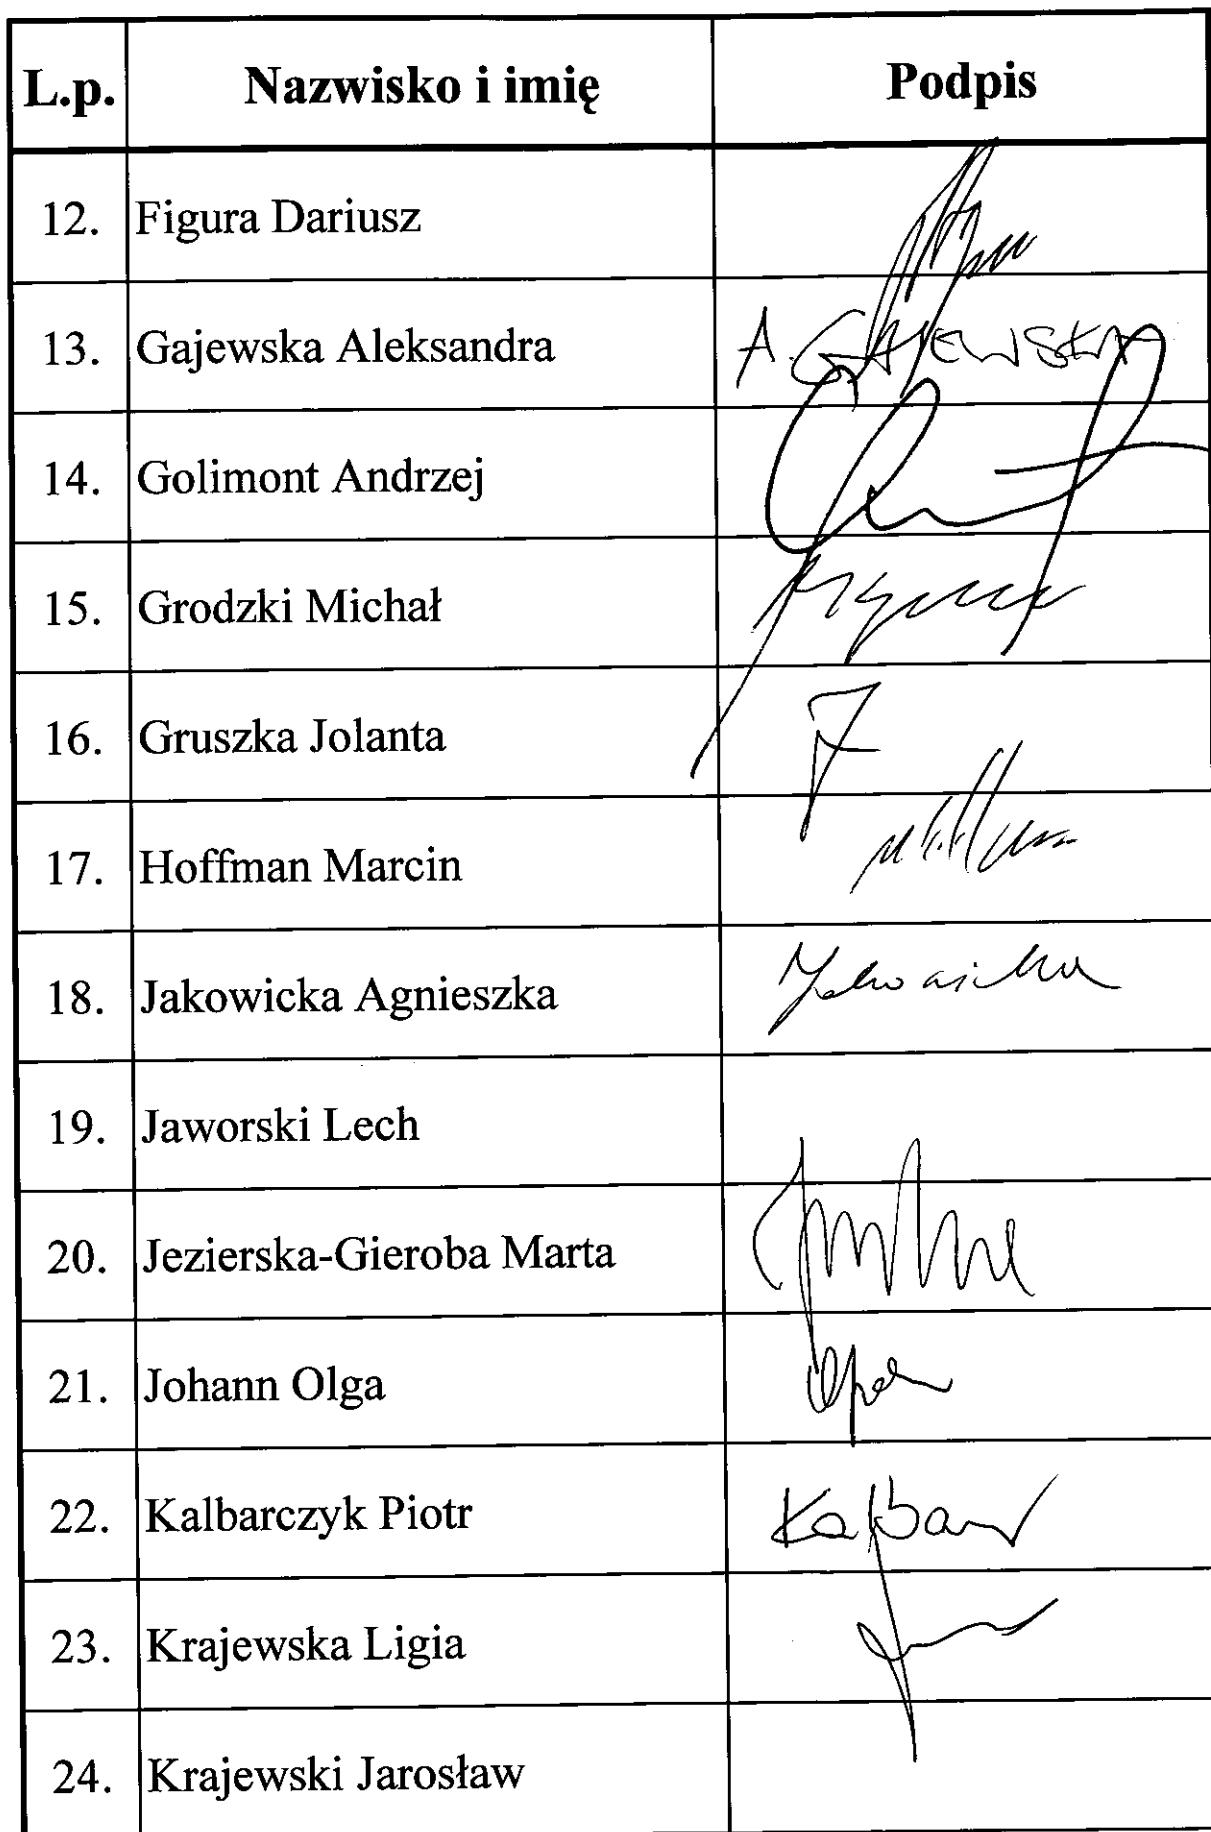 L.p. Nazwisko i imię Podpis
12. Figura Dariusz
13. Gajewska Aleksandra A. GAJEWSKA
14. Golimont Andrzej
15. Grodzki Michał
16. Gruszka Jolanta
17. Hoffman Marcin
18. Jakowicka Agnieszka
19. Jaworski Lech
20. Jezierska-Gieroba Marta
21. Johann Olga
22. Kalbarczyk Piotr Kalbar
23. Krajewska Ligia
24. Krajewski Jarosław